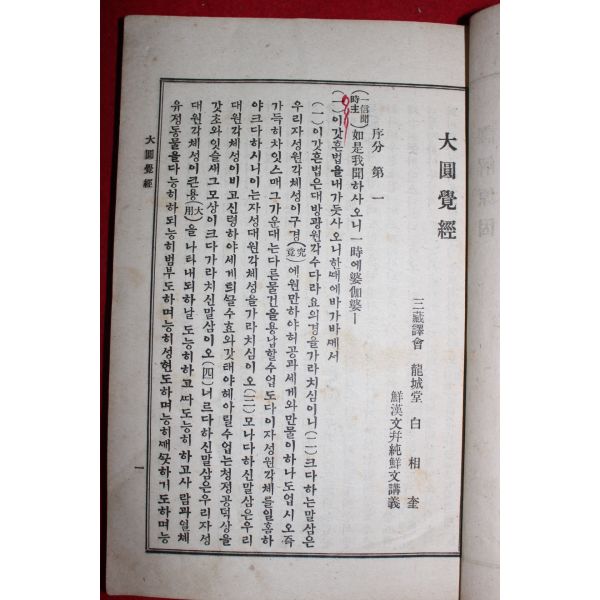 大圓覺經
三藏譯會 龍城堂 白相奎
鮮漢文幷純鮮文講義
序分 第一
(一信聞時主)如是我聞하사오니一時에婆伽婆ㅣ
(一)이갓흔법을내가듯사오니한때에바가바께서
(一)이갓흔법은대방광원각수다라요의경을가라치심이니(二)크다하는말삼은
우리자성원각체성이구경(究竟)에원만하야허공과세계와만물이하나도업시오즉
가득히차잇스매그가운대는다른물건을용납할수업도다이자성원각체를일홈하
야크다하시니이는자성대원각체성을가라치심이오(三)모나다하신말삼은우리
대원각체성이비고신령하야세계띄끌수효와갓태야헤아릴수업는청정공덕상을
갓초와잇슬새그모상이크다가라치신말삼이오(四)너르다하신말삼은우리자성
대원각체성이큰용(大用)을나타내되하날도능히하고따도능히하고사람과일체
유정동물을다능히하되능히범부도하며능히성현도하며능히깨끗하기도하며능
大圓覺經
一